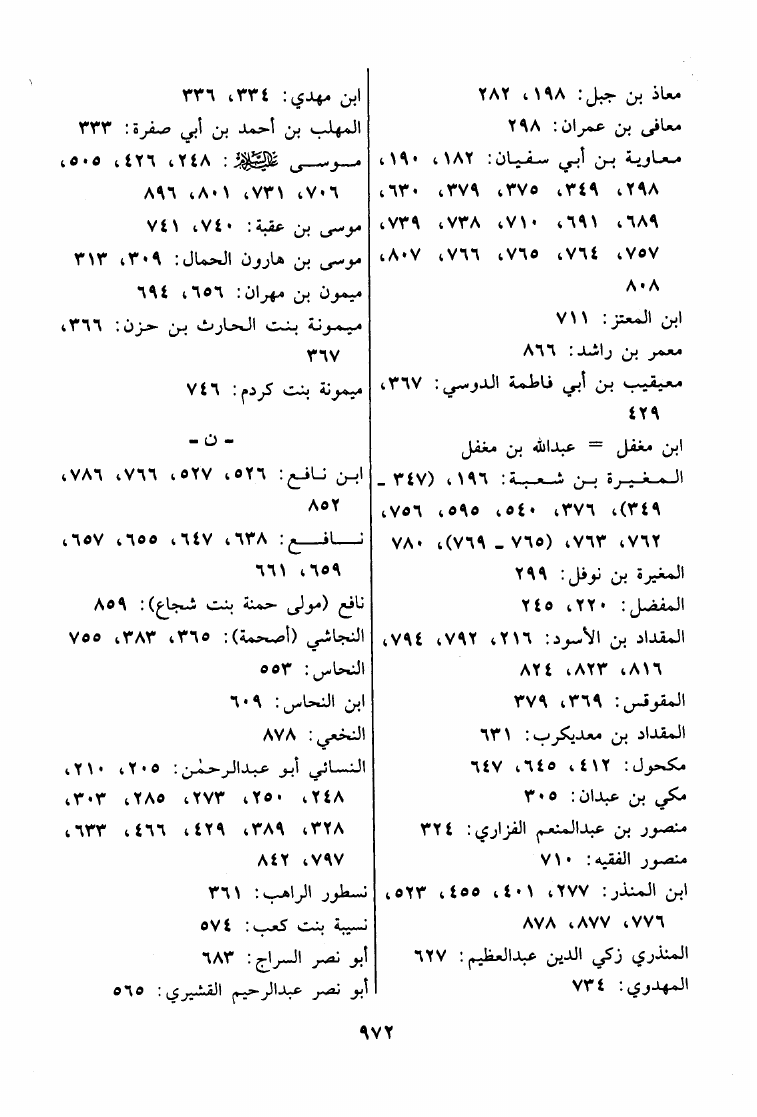 معاذ بن جبل: ١٩٨، ٢٨٢
معافى بن عمران: ٢٩٨
معاوية بن أبي سفيان: ١٨٢، ١٩٠،
٢٩٨، ٣٤٩، ٣٧٥، ٣٧٩، ٦٣٠،
٦٨٩، ٦٩١، ٧١٠، ٧٣٨، ٧٣٩،
٧٥٧، ٧٦٤، ٧٦٥، ٧٦٦، ٨٠٧،
٨٠٨
ابن المعتز: ٧١١
معمر بن راشد: ٨٦٦
معيقيب بن أبي فاطمة الدوسي: ٣٦٧،
٤٢٩
ابن مغفل = عبدالله بن مغفل
المغيرة بن شعبة: ١٩٦، (٣٤٧ ـ
٣٤٩)، ٣٧٦، ٥٤٠، ٥٩٥، ٧٥٦،
٧٦٢، ٧٦٣، (٧٦٥ ـ ٧٦٩)، ٧٨٠
المغيرة بن نوفل: ٢٩٩
المفضل: ٢٢٠، ٢٤٥
المقداد بن الأسود: ٢١٦، ٧٩٢، ٧٩٤،
٨١٦، ٨٢٣، ٨٢٤
المقوقس: ٣٦٩، ٣٧٩
المقداد بن معديكرب: ٦٣١
مكحول: ٤١٢، ٦٤٥، ٦٤٧
مكي بن عبدان: ٣٠٥
منصور بن عبدالمنعم الفزاري: ٣٢٤
منصور الفقيه: ٧١٠
ابن المنذر: ٢٧٧، ٤٠١، ٤٥٥، ٥٢٣،
٧٧٦، ٨٧٧، ٨٧٨
المنذري زكي الدين عبدالعظيم: ٦٢٧
المهدوي: ٧٣٤
ابن مهدي: ٣٣٤، ٣٣٦
المهلب بن أحمد بن أبي صفرة: ٣٣٣
موسى عليه السلام: ٢٤٨، ٤٢٦، ٥٠٥،
٧٠٦، ٧٣١، ٨٠١، ٨٩٦
موسى بن عقبة: ٧٤٠، ٧٤١
موسى بن هارون الحمال: ٣٠٩، ٣١٣
ميمون بن مهران: ٦٥٦، ٦٩٤
ميمونة بنت الحارث بن حزن: ٣٦٦،
٣٦٧
ميمونة بنت كردم: ٧٤٦
- ن -
ابن نافع: ٥٢٦، ٥٢٧، ٧٦٦، ٧٨٦،
٨٥٢
نافع: ٦٣٨، ٦٤٧، ٦٥٥، ٦٥٧،
٦٥٩، ٦٦١
نافع (مولى حمنة بنت شجاع): ٨٥٩
النجاشي (أصحمة): ٣٦٥، ٣٨٣، ٧٥٥
النحاس: ٥٥٣
ابن النحاس: ٦٠٩
النخعي: ٨٧٨
النسائي أبو عبدالرحمٰن: ٢٠٥، ٢١٠،
٢٤٨، ٢٥٠، ٢٧٣، ٢٨٥، ٣٠٣،
٣٢٨، ٣٨٩، ٤٢٩، ٤٦٦، ٦٣٣،
٧٩٧، ٨٤٢
نسطور الراهب: ٣٦١
نسيبة بنت كعب: ٥٧٤
أبو نصر السراج: ٦٨٣
أبو نصر عبدالرحيم القشيري: ٥٦٥
٩٧٢